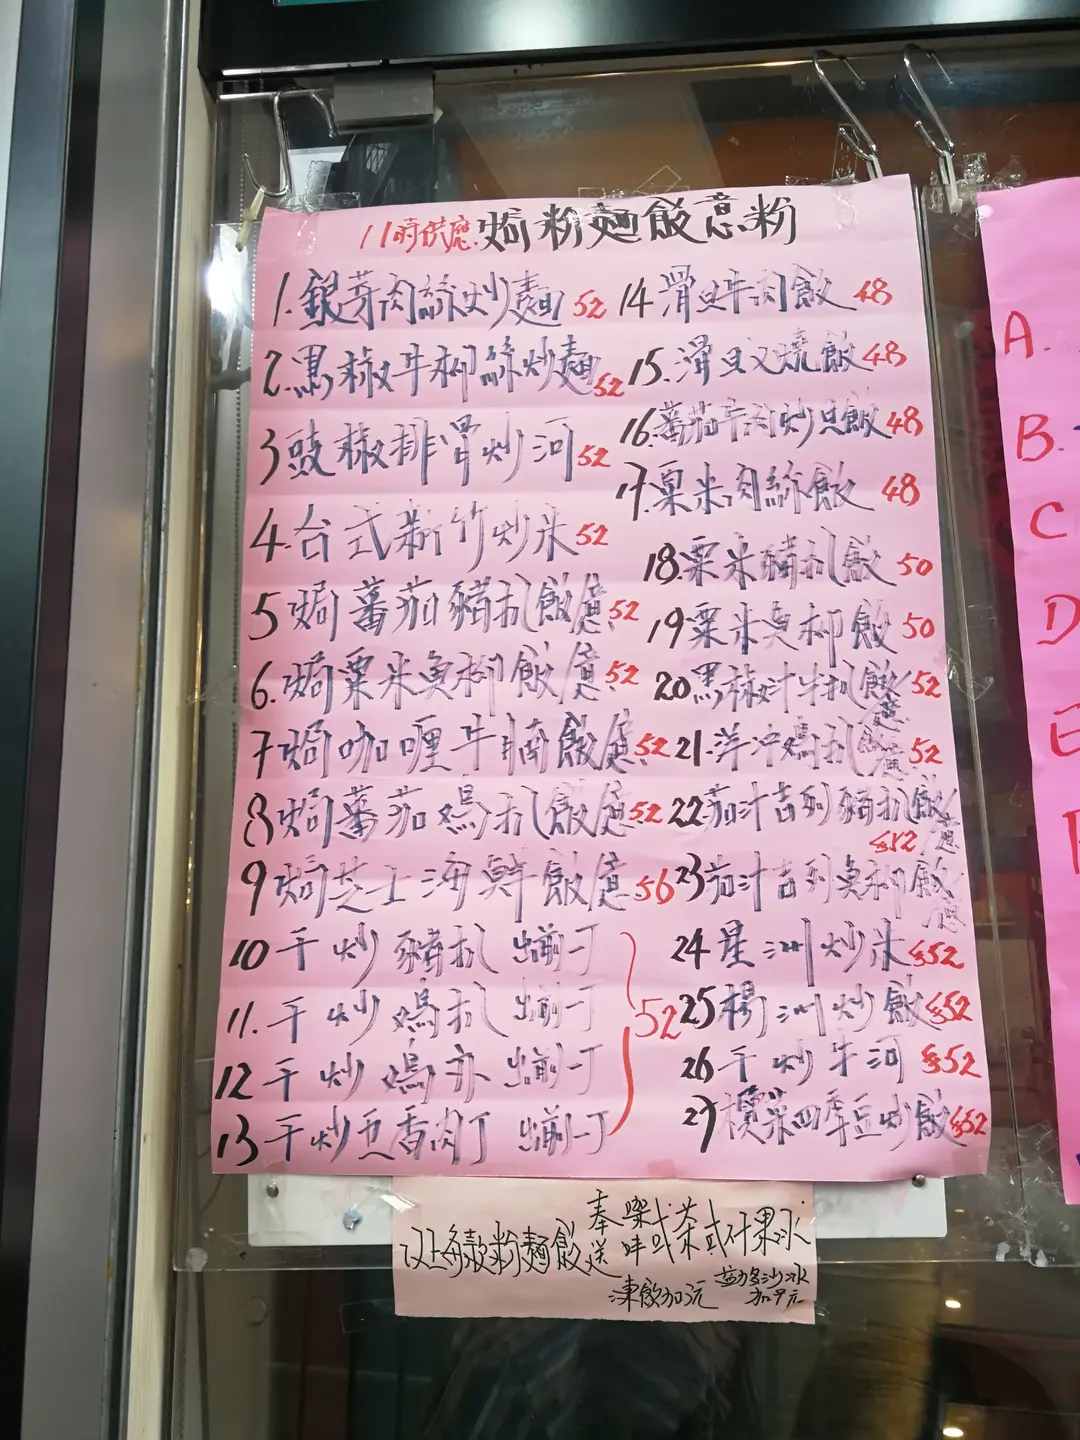 11時供應 焗粉麵飯意粉
1. 銀芽肉絲炒麵 52
2. 黑椒牛柳絲炒麵 52
3 豉椒排骨炒河 52
4. 台式新竹炒米 52
5 焗蕃茄豬扒飯/意 52
6. 焗粟米魚柳飯/意 52
7 焗咖喱牛腩飯/意 52
8 焗蕃茄鳮扒飯/意 52
9 焗芝士海鮮飯/意 56
10 干炒豬扒
11. 干炒鳮扒
12 干炒鳮亦
13 干炒五香肉丁
52
14 滑旦牛肉飯 48
15. 滑旦叉燒飯 48
16. 蕃茄牛肉炒旦飯 48
17. 粟米肉絲飯 48
18. 粟米豬扒飯 50
19 粟米魚柳飯 50
20 黑椒汁牛扒飯/意 52
21. 洋沖鳮扒飯/意 52
22. 茄汁吉列豬扒飯/意 $52
23 茄汁吉列魚柳飯/意
24 星洲炒米 $52
25 楊洲炒飯 $52
26 干炒牛河 $52
27 欖菜四季豆炒飯 $52
以上每款粉麵飯奉送 或茶或什果冰
凍飲加 元
沙冰加9元
A.
B.
C
D
E